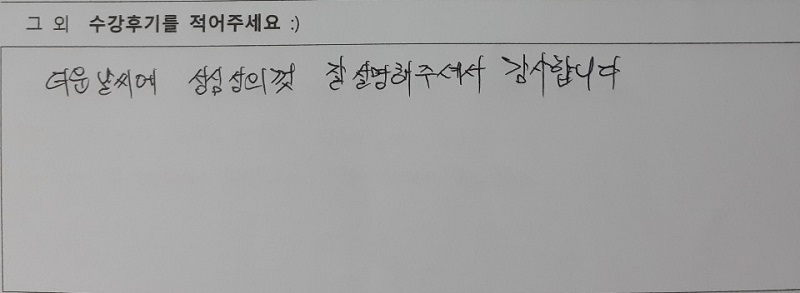 그 외 수강후기를 적어주세요 :)
더운 날씨에 성심성의껏 잘 설명해주셔서 감사합니다